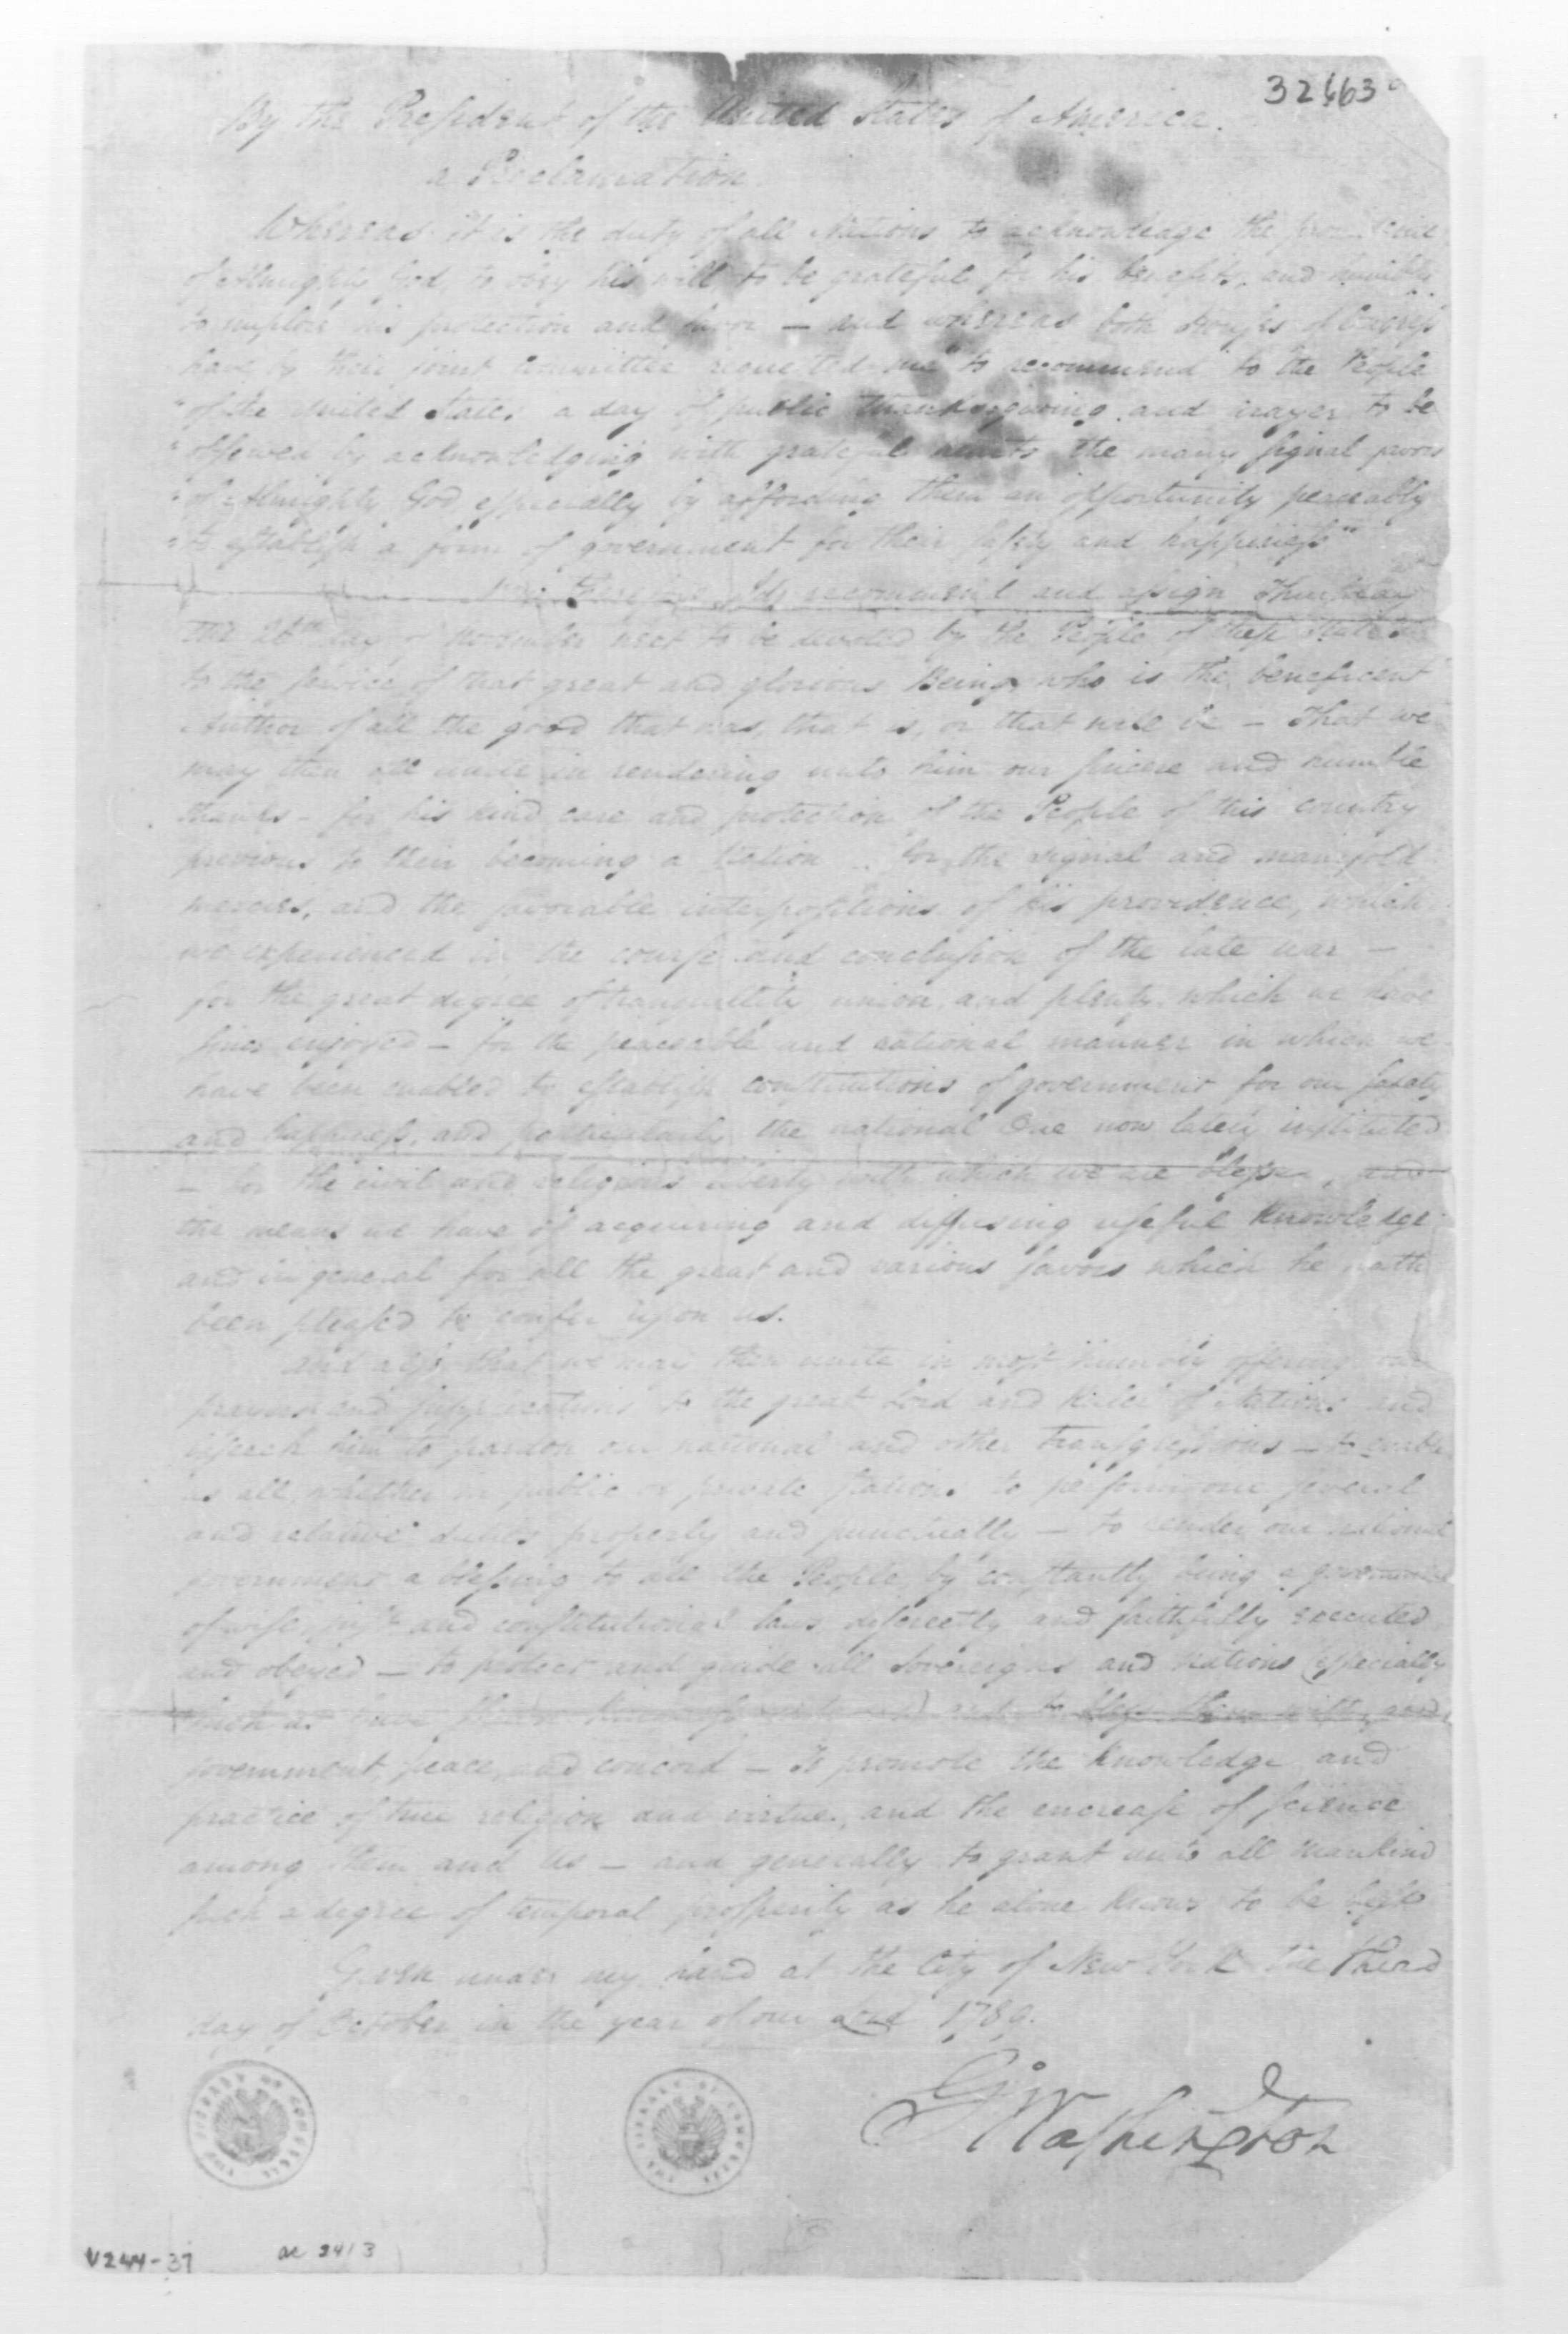 32663
By the President of the United States of America.
a Proclamation.
Whereas it is the duty of all Nations to acknowledge the providence
of Almighty God, to obey his will, to be grateful for his benefits, and humbly
to implore his protection and favor — and whereas both Houses of Congress
have by their joint Committee requested me "to recommend to the People
"of the United States a day of public thanksgiving and prayer to be
"offered by acknowledging with grateful hearts the many signal favors
"of Almighty God especially by affording them an opportunity peaceably
"to establish a form of government for their safety and happiness"
Now Therefore I do recommend and assign Thursday
the 26th day of November next to be devoted by the People of these States
to the service of that great and glorious Being, who is the beneficent
Author of all the good that was, that is, or that will be — That we
may then all unite in rendering unto him our sincere and humble
thanks — for his kind care and protection of the People of this country
previous to their becoming a Nation — for the signal and manifold
mercies, and the favorable interpositions of his providence, which
we experienced in the course and conclusion of the late war —
for the great degree of tranquillity, union, and plenty, which we have
since enjoyed — for the peaceable and rational manner in which we
have been enabled to establish constitutions of government for our safety
and happiness, and particularly the national One now lately instituted
— for the civil and religious liberty with which we are blessed, and
the means we have of acquiring and diffusing useful knowledge
and in general for all the great and various favors which he hath
been pleased to confer upon us.
And also that we may then unite in most humbly offering our
prayers and supplications to the great Lord and Ruler of Nations and
beseech him to pardon our national and other transgressions — to enable
us all, whether in public or private stations, to perform our several
and relative duties properly and punctually — to render our national
government a blessing to all the People by constantly being a government
of wise, just and constitutional laws, discreetly and faithfully executed
and obeyed — to protect and guide all Sovereigns and Nations (especially
such as have shewn kindness unto us) and to bless them with good
government, peace, and concord — To promote the knowledge and
practice of true religion and virtue, and the encrease of science
among them and Us — and generally to grant unto all mankind
such a degree of temporal prosperity as he alone knows to be best.
Given under my hand at the City of New York the third
day of October in the year of our Lord 1789.
Go: Washington
THE LIBRARY OF CONGRESS
THE LIBRARY OF CONGRESS
V244-37
ac 2413